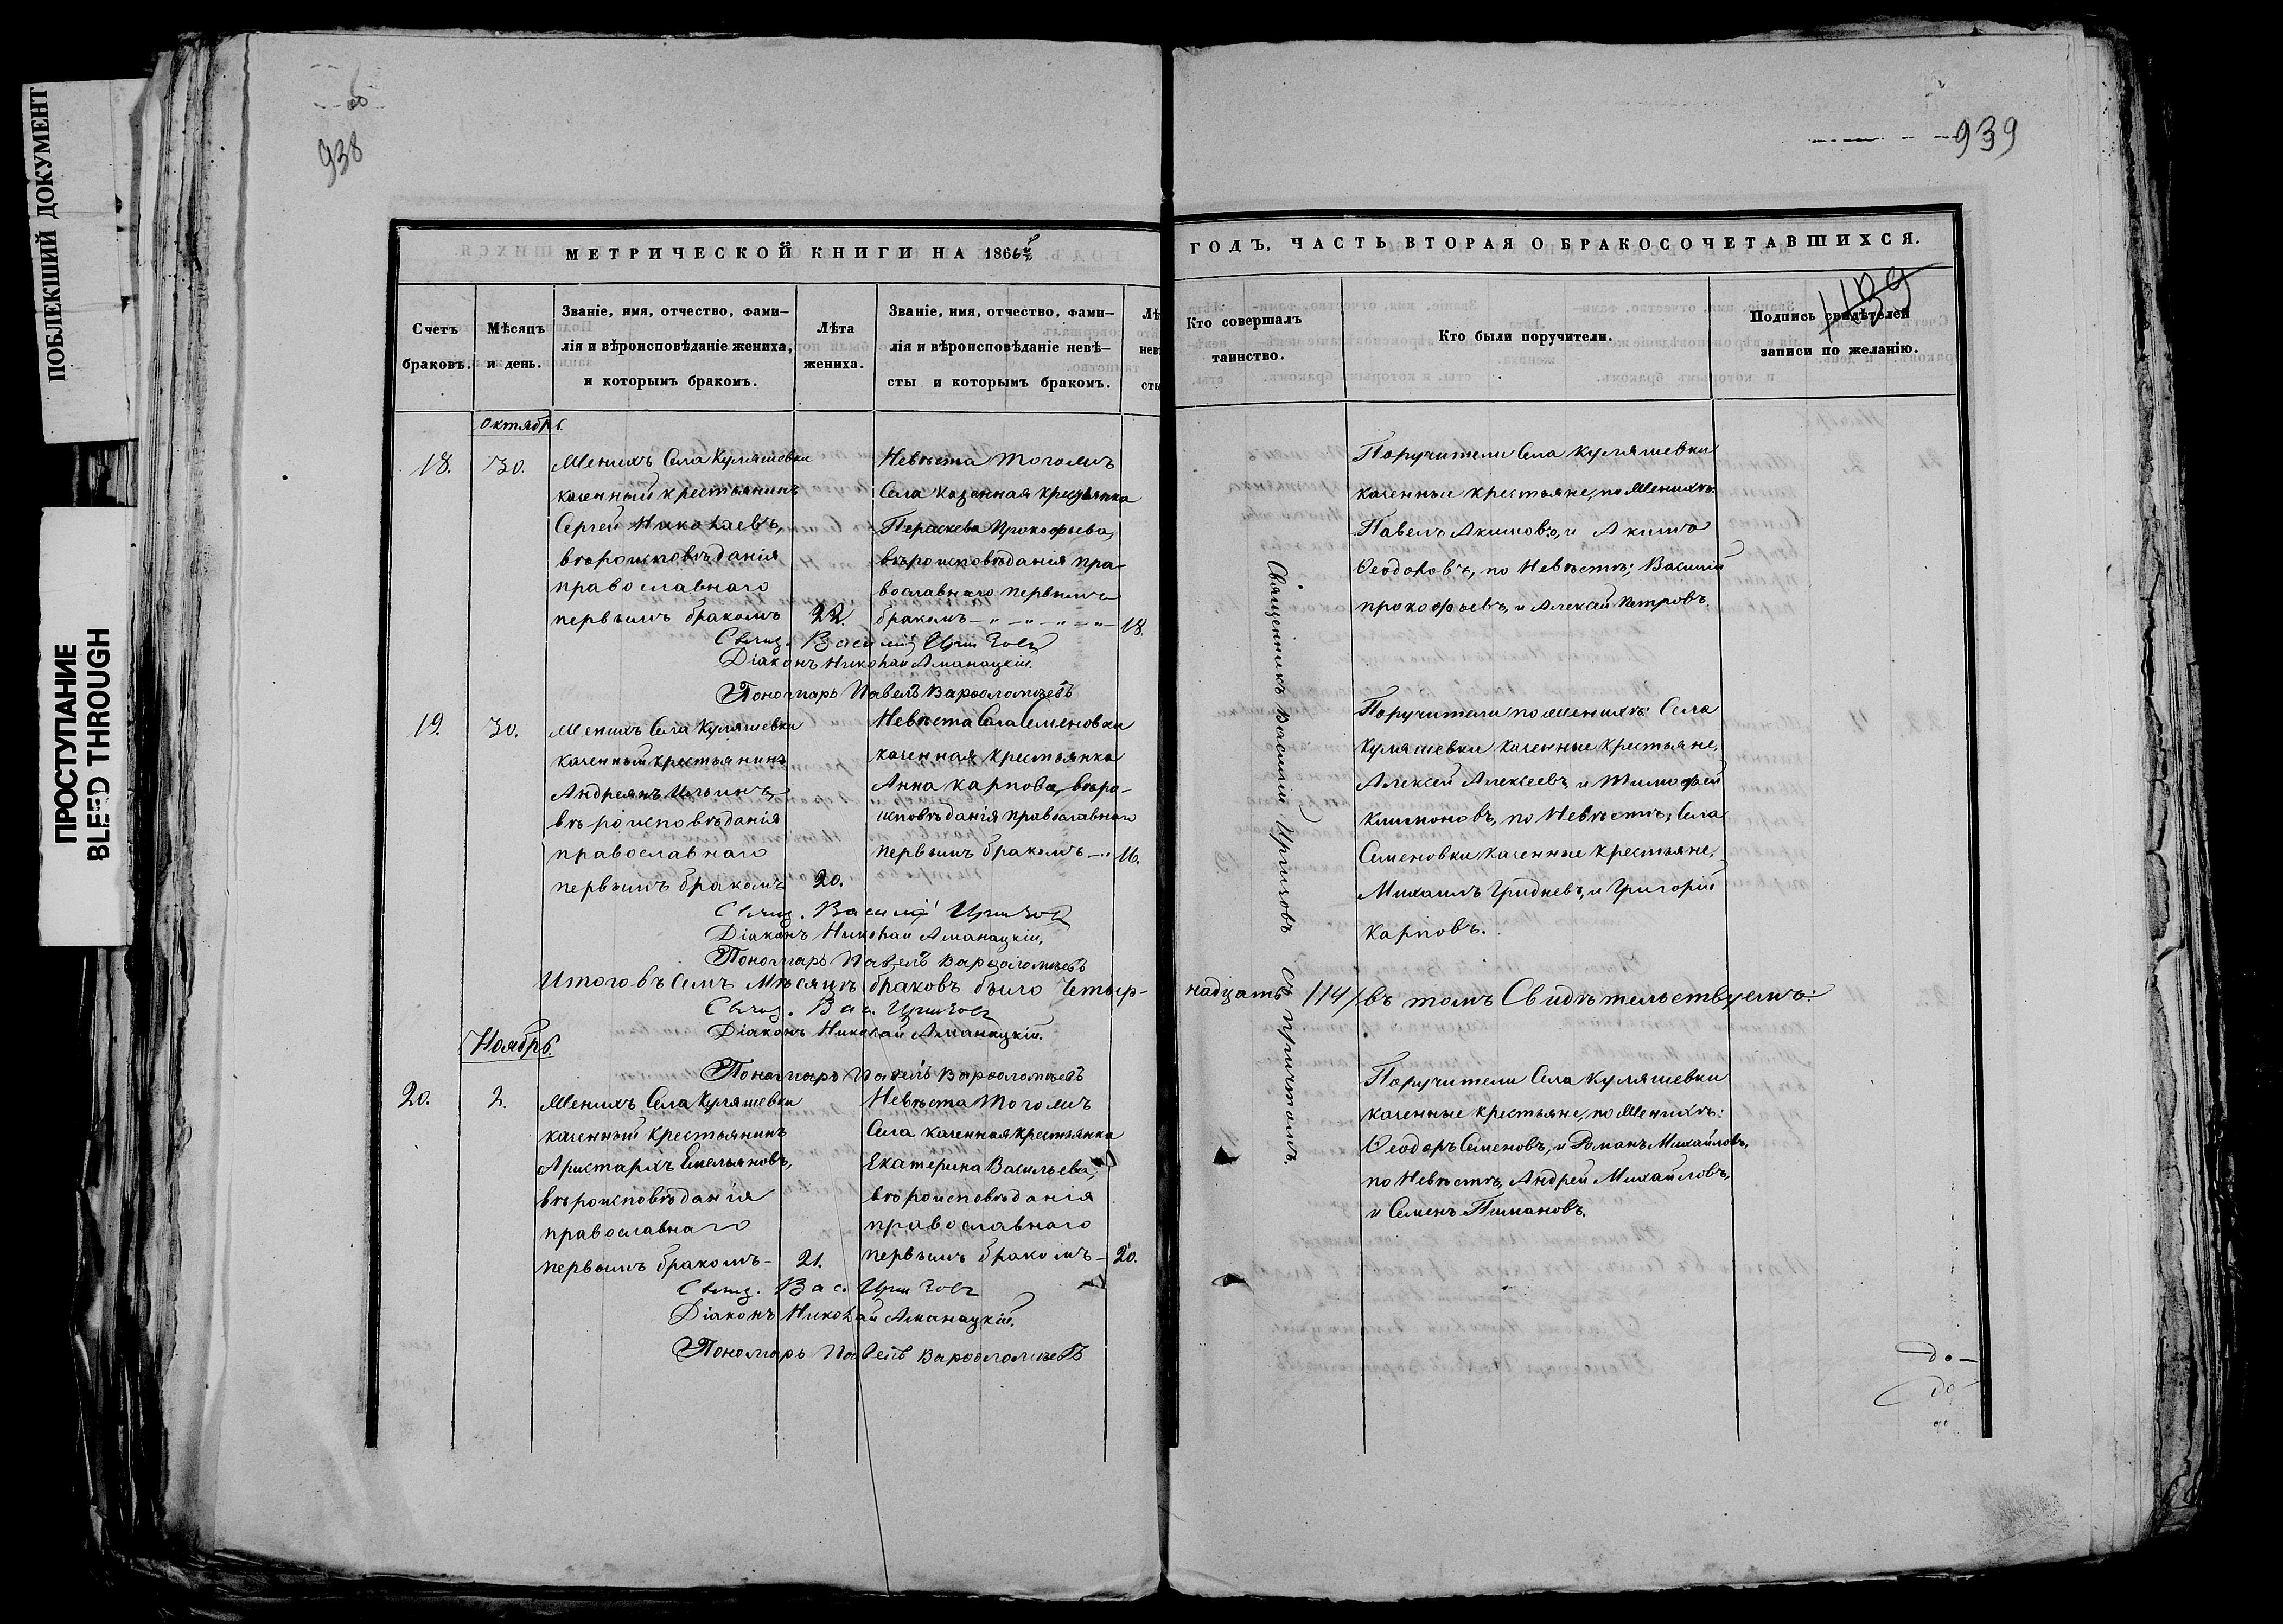 ПОБЛЕКШИЙ ДОКУМЕНТ
ПРОСТУПАНИЕ
BLEED THROUGH
об
938
939
1139
МЕТРИЧЕСКОЙ КНИГИ НА 1866й
ГОДЪ, ЧАСТЬ ВТОРАЯ О БРАКОСОЧЕТАВШИХСЯ.
Счетъ
браковъ.
Мѣсяцъ
и день.
Званіе, имя, отчество, фами-
лія и вѣроисповѣданіе жениха,
и которымъ бракомъ.
Лѣта
жениха.
Званіе, имя, отчество, фами-
лія и вѣроисповѣданіе невѣ-
сты и которымъ бракомъ.
Лѣ
нев
сты
Кто совершалъ
таинство.
Кто были поручители.
Подпись свидѣтелей
записи по желанію.
Октябрь.
18.
30.
Женихъ Села Куляшевки
казенный крестьянинъ
Сергей Николаевъ,
вѣроисповѣданія
православнаго
первымъ бракомъ
22.
Невѣста тогомъ
Села казенная крестьянка
Параскева Прокофьева,
вѣроисповѣданія пра-
вославнаго первымъ
бракомъ
18.
Свящ. Василій
Діаконъ Николай Аманацкій.
Пономарь Павелъ Варфоломѣевъ
Поручители Села Куляшевки
казенные крестьяне, по Женихѣ:
Павелъ Акимовъ, и Акимъ
Ѳеодоровъ, по Невѣстѣ; Василій
прокофьевъ, и Алексей Петровъ.
19.
30.
Женихъ Села Куляшевки
казенный крестьянинъ
Андреянъ Ильинъ,
вѣроисповѣданія
православнаго
первымъ бракомъ
20.
Невѣста Села Семеновки
казенная крестьянка
Анна Карпова, вѣро-
исповѣданія православнаго
первымъ бракомъ
16.
Свящ. Василій
Діаконъ Николай Аманацкій,
Пономарь Павелъ Варфоломѣевъ
Поручители по Женихѣ: Села
Куляшевки казенные крестьяне,
Алексей Алексеевъ, и Тимофей
Климоновъ, по Невѣстѣ; Села
Семеновки казенные крестьяне,
Михаилъ Гридневъ, и Григорій
Карповъ.
Священникъ Василій съ причтомъ.
Итого въ Семъ Мѣсяцѣ браковъ было Четыр-
надцать /14/ въ томъ Свидѣтельствуемъ:
Свящ. Вас.
Діаконъ Николай Аманацкій.
Пономарь Павелъ Варфоломѣевъ
Ноябрь.
20.
2.
Женихъ Села Куляшевки
казенный крестьянинъ
Аристархъ Емельяновъ,
вѣроисповѣданія
православнаго
первымъ бракомъ-
21.
Невѣста тогомъ
Села казенная крестьянка
Екатерина Васильева,
вѣроисповѣданія
православнаго
первымъ бракомъ-
20.
Свящ. Вас.
Діаконъ Николай Аманацкій.
Пономарь Павелъ Варфоломѣевъ
Поручители Села Куляшевки
казенные крестьяне, по Женихѣ:
Ѳеодоръ Семеновъ, и Романъ Михайловъ,
по Невѣстѣ, Андрей Михайловъ,
и Семенъ Пимановъ.